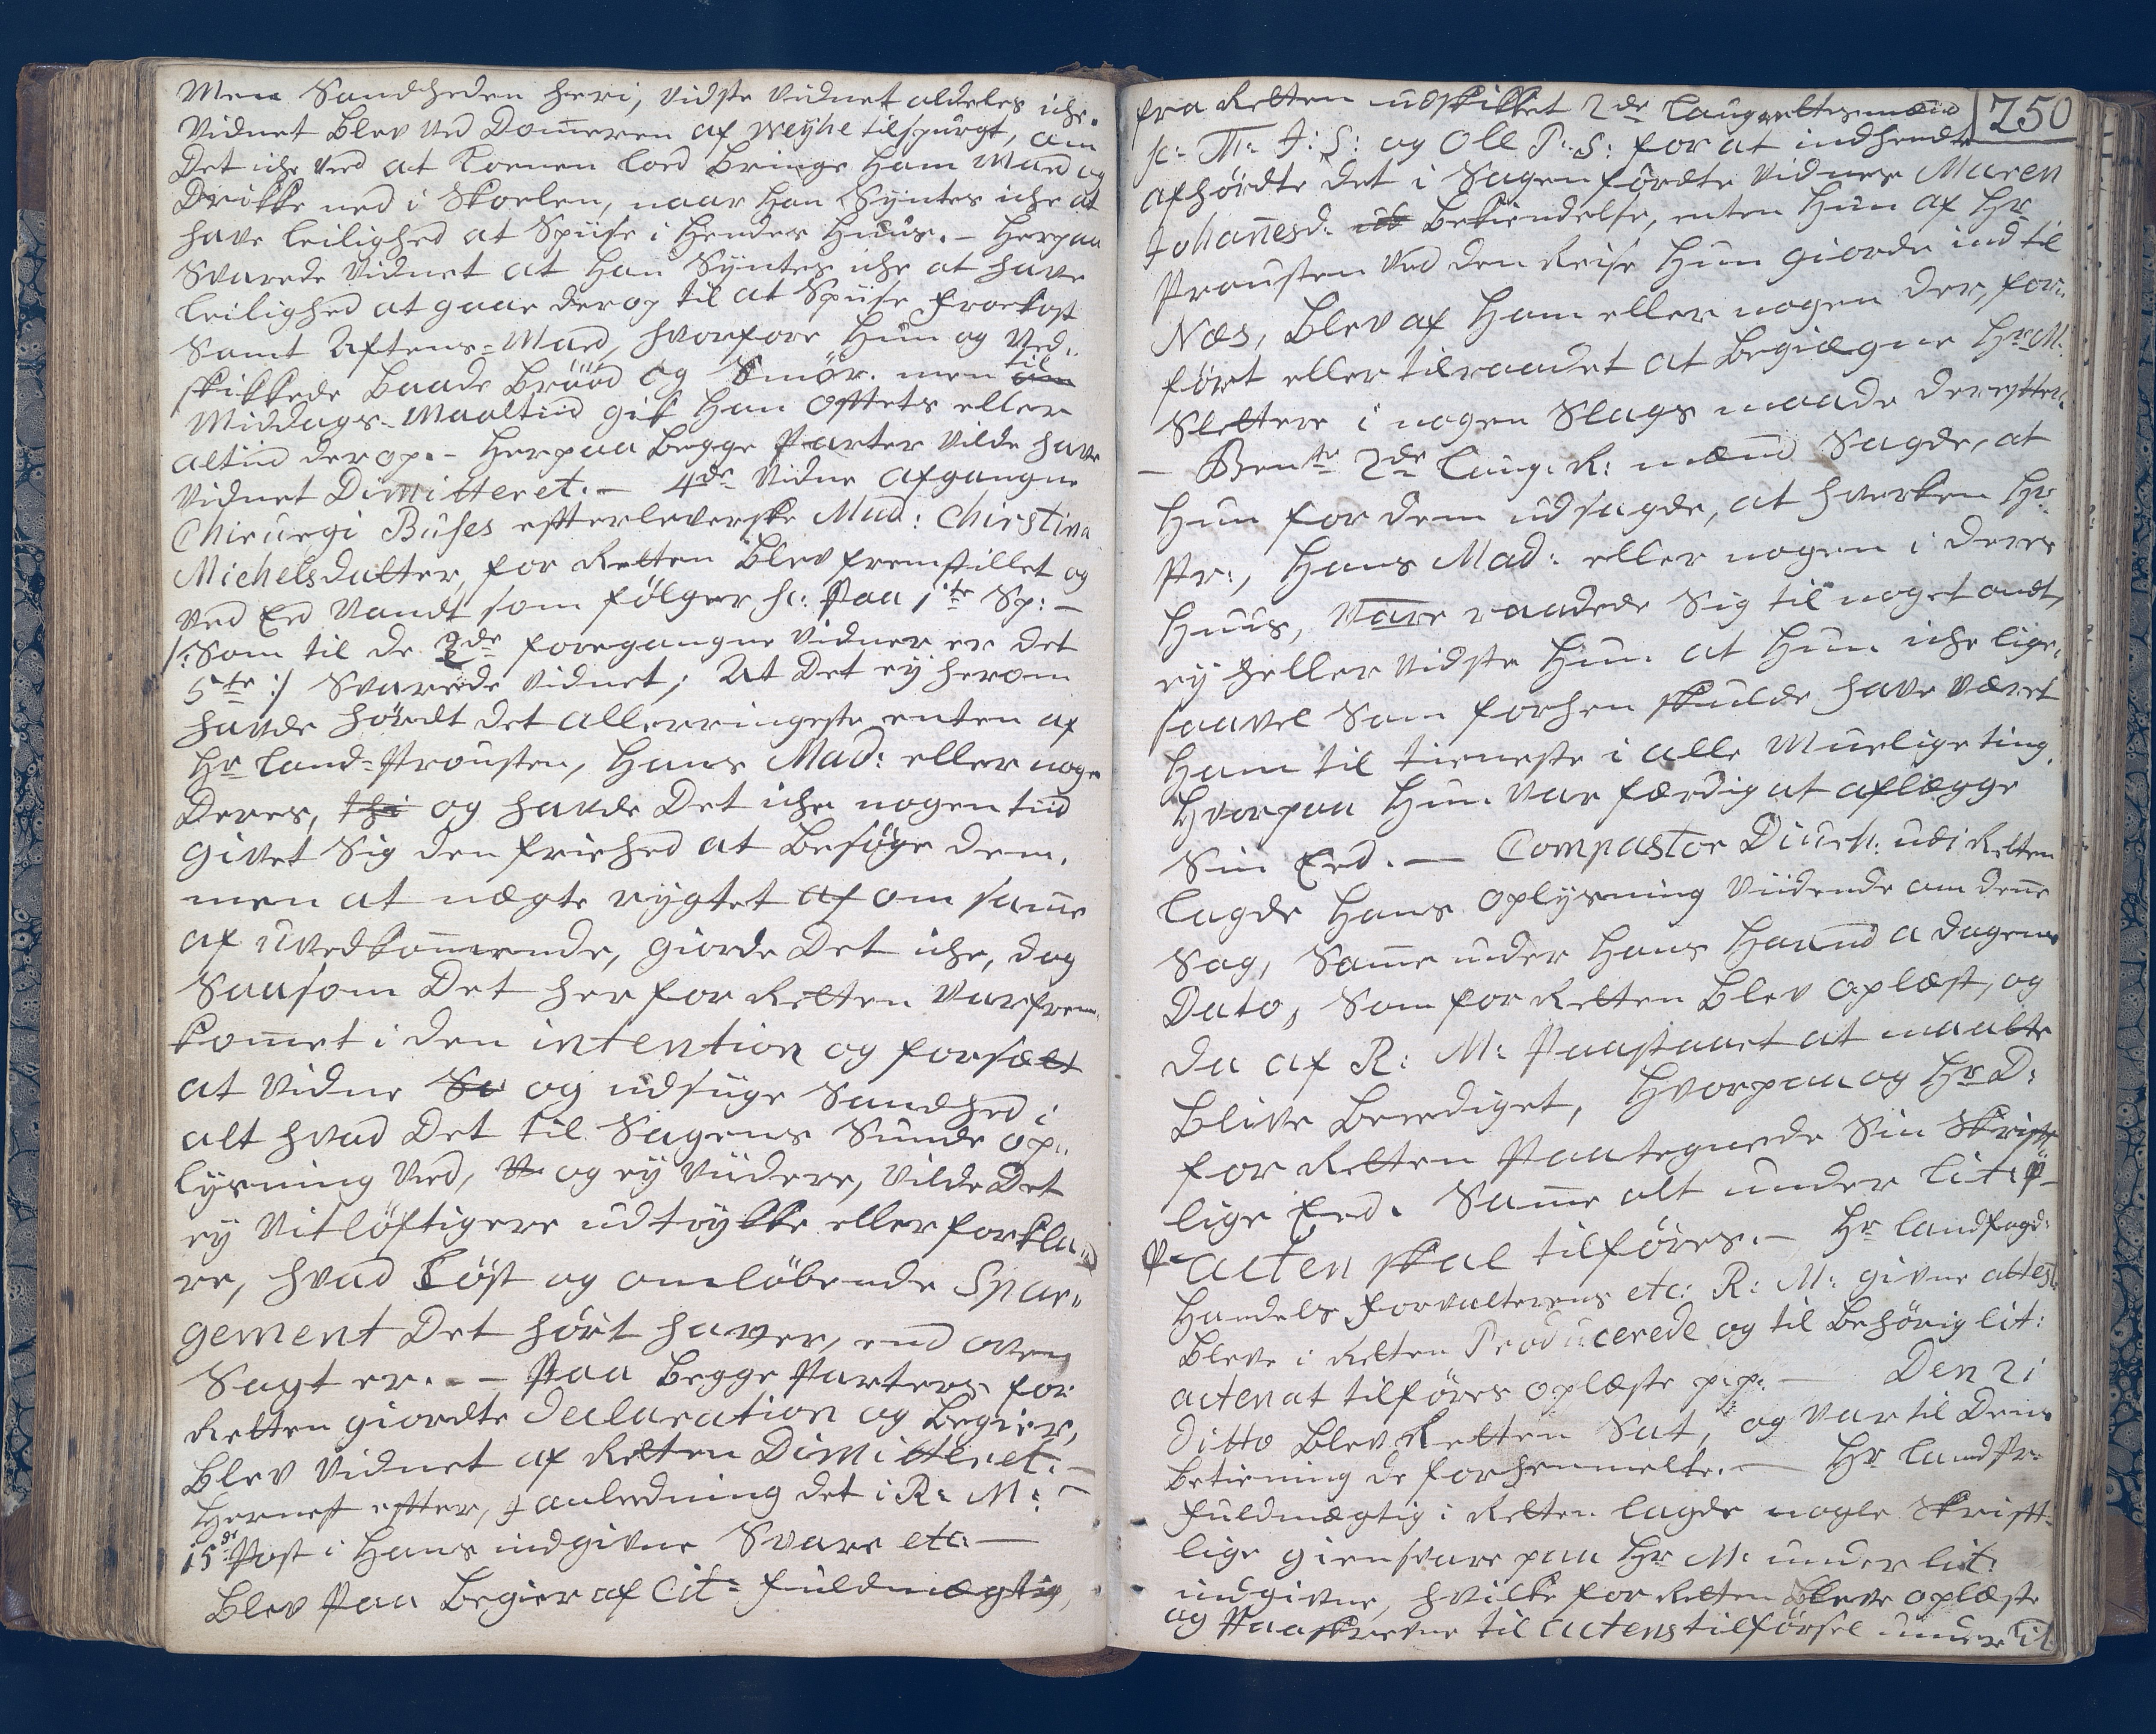 Men Sandheden heri, vidste vidnet aldeles iche.
Vidnet blev ved Dom̅eren af Weyhe tilspurgt, om
Det iche ved at Konen lod bringe ham Mad og
Drikke ned i Skoelen, naar han Syntes iche at
have leilighed at Spiise i hendes huus. - Herpaa
Svarede vidnet at han Syntes iche at have
leilighed at gaae derop til at Spiise Frockost
samt Aftens-Mad, hvorfore hun og ned..
skikkede baade brööd og Smör. men til
Middags-Maaltiid gik han oftets eller
altiid derop. - Herpaa begge Parter vilde have
vidnet Dimitteret. - 4de vidne afgangne
Chirurgi Buses efterleverske Mad: Chirstina
Michelsdatter, for Retten blev fremstillet og
ved Eed vandt som fölger sc: Paa 1te Sp: -
/: Som til de 3de foregangne vidner er det
5te :/ Svarede vidnet; At Det ey herom
havde hördt det allerringeste enten af
Hr Land-Prousten, hans Mad: eller noge
Deres, thi og havde Det iche nogen tiid
givet Sig den friehed at besöge dem,
men at nægte rygtet af om sam̅e
af uvedkom̅ende, giorde Det iche, dog
Saasom Det her for Retten var frem
kom̅et i den intention og forsætt
at vidne Sa og udsiige Sandhed i
alt hvad Det til Sagens Sande op..
lysning ved, og ey viidere, vilde Det
ey vitlöftigere udtrykke eller forkla..
re, hvad Löst og omlöbende Spar..
gement Det hört haver, end oven
Sagt er. - - Paa begge Parters for
Retten giordte declaration og begier,
blev vidnet af Retten Dimitteret. -
Hernest efter, anledning det i R: M: -
15de Post i hans indgivne Svare etc: -
Blev Paa begier af Cit: fuldmægtig,
250
fra Retten udskikket 2de laugrettesmænd
sc: Th: J: S: og Ole P: S: for at indhendte
afhördte det i Sagen fördte vidnes Maren
Johan̅esd: bekiendelse, enten hun af Hr
Prousten ved den Reise hun giorde ind til
Næs, blev af ham eller nogen der, for..
fört eller tilraadet at begiægne Hr M:
Slettere i nogen Slags maade derefter.
- Ben̅te 2de laug. R: mænd Sagde, at
hun for dem udsagde, at hverken Hr
Pr:, hans Mad: eller nogen i deres
huus, vare raadede Sig til noget ondt,
ey heller vidste hun at hun iche lige
saavel Som forhen skulde have været
ham til tieneste i alle Muelige ting.
Hvorpaa hun var færdig at aflægge
Sin Eed. - Compastor Diurh: udi Retten
lagde hans oplysning viidende om den̅e
Sag, Sam̅e under hans haand a dagens
Dato, Som for Retten blev oplæst, og
da af R: M: Paastaaet at maatte
blive beediget, hvorpaa og Hr D:
for Retten Paategnede Sin Skrift..
lige Eed. Sam̅e alt under Lit: φ
φ acten skal tilföres. - Hr Landfogd:
Handels Forvalterens etc: R: M: givne attest
bleve i Retten Producerede og til behörig lit:
acten at tilföres oplæste p.p. - Den 21
Ditto blev Retten Sat, og var til Dens
betiening de forhenmelte. - Hr LandPr:
fuldmægtig i Retten lagde nogle Skrift-
lige giensvare paa Hr M: under lit:
indgivne, hvilke for Retten bleve oplæste
og Paaskrevne til actens tilförsel under Lit